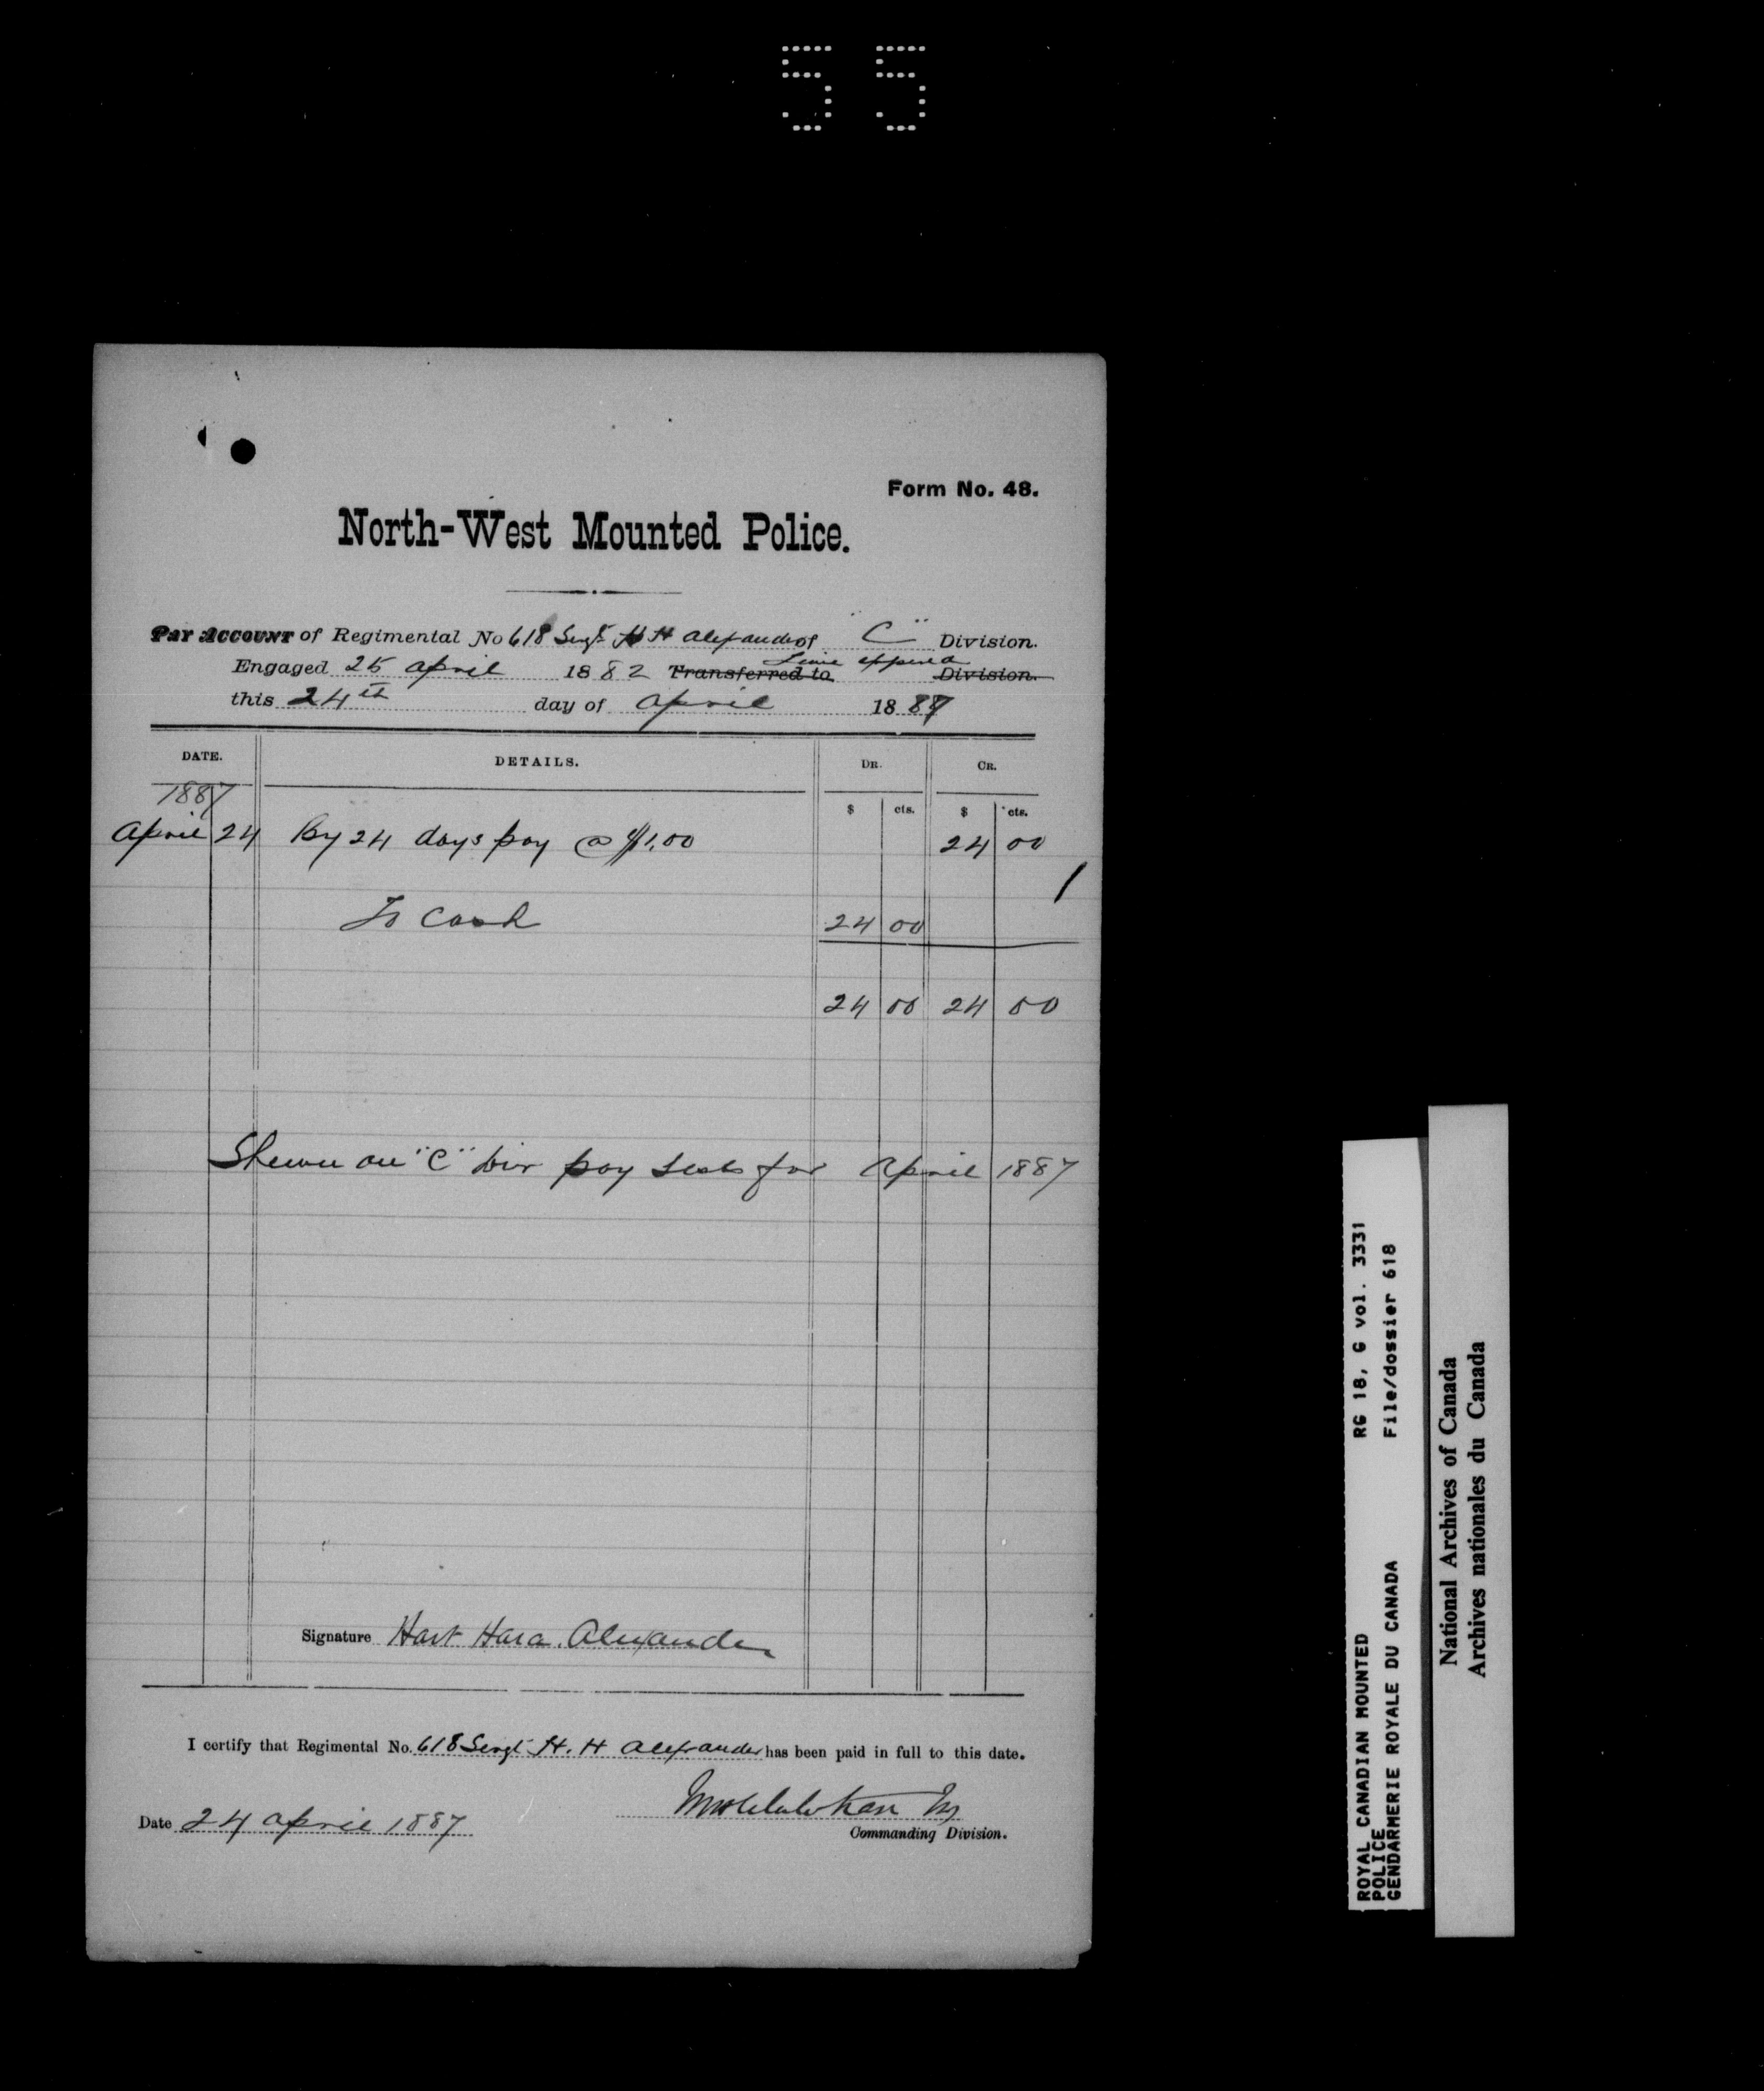 55
Form No. 48.
North-West Mounted Police.
Pay Account of Regimental No 618 Sergt H H Alexander of "C" Division.
Time expired
Engaged 25 April 1882 Transferred to Division.
this 24th day of April 1887
DATE. DETAILS. DR. CR.
1887 $ cts. $ cts.
April 24 By 24 days pay @ $1.00 24 00
To Cash 24 00
24 00 24 00
Shewn on "C" Div pay lists for April 1887
Signature Hart Hara Alexander
I certify that Regimental No. 618 Sergt H. H Alexander has been paid in full to this date.
Date 24 April 1887
Commanding Division.
ROYAL CANADIAN MOUNTED RG 18, G vol. 3331
POLICE
GENDARMERIE ROYALE DU CANADA File/dossier 618
National Archives of Canada
Archives nationales du Canada